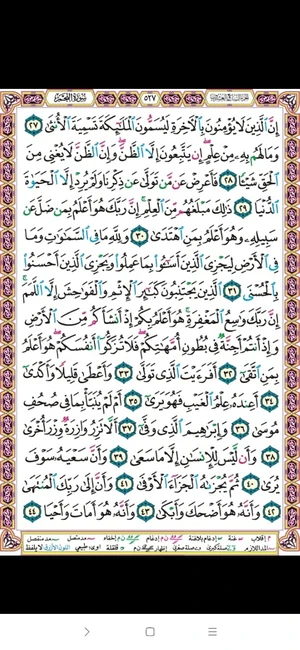 سورة النجم ٥٢٧ الجزء السابع والعشرون
إِنَّ ٱلَّذِينَ لَا يُؤْمِنُونَ بِٱلْأٓخِرَةِ لَيُسَمُّونَ ٱلْمَلَٰٓئِكَةَ تَسْمِيَةَ ٱلْأُنثَىٰ ٢٧
وَمَا لَهُم بِهِۦ مِنْ عِلْمٍ إِن يَتَّبِعُونَ إِلَّا ٱلظَّنَّ وَإِنَّ ٱلظَّنَّ لَا يُغْنِى مِنَ
ٱلْحَقِّ شَيْـًٔا ٢٨ فَأَعْرِضْ عَن مَّن تَوَلَّىٰ عَن ذِكْرِنَا وَلَمْ يُرِدْ إِلَّا ٱلْحَيَوٰةَ
ٱلدُّنْيَا ٢٩ ذَٰلِكَ مَبْلَغُهُم مِّنَ ٱلْعِلْمِ إِنَّ رَبَّكَ هُوَ أَعْلَمُ بِمَن ضَلَّ عَن
سَبِيلِهِۦ وَهُوَ أَعْلَمُ بِمَنِ ٱهْتَدَىٰ ٣٠ وَلِلَّهِ مَا فِى ٱلسَّمَٰوَٰتِ وَمَا
فِى ٱلْأَرْضِ لِيَجْزِىَ ٱلَّذِينَ أَسَٰٓـُٔوا۟ بِمَا عَمِلُوا۟ وَيَجْزِىَ ٱلَّذِينَ أَحْسَنُوا۟
بِٱلْحُسْنَى ٣١ ٱلَّذِينَ يَجْتَنِبُونَ كَبَٰٓئِرَ ٱلْإِثْمِ وَٱلْفَوَٰحِشَ إِلَّا ٱللَّمَمَ
إِنَّ رَبَّكَ وَٰسِعُ ٱلْمَغْفِرَةِ هُوَ أَعْلَمُ بِكُمْ إِذْ أَنشَأَكُم مِّنَ ٱلْأَرْضِ
وَإِذْ أَنتُمْ أَجِنَّةٌ فِى بُطُونِ أُمَّهَٰتِكُمْ فَلَا تُزَكُّوٓا۟ أَنفُسَكُمْ هُوَ أَعْلَمُ
بِمَنِ ٱتَّقَىٰٓ ٣٢ أَفَرَءَيْتَ ٱلَّذِى تَوَلَّىٰ ٣٣ وَأَعْطَىٰ قَلِيلًا وَأَكْدَىٰٓ
٣٤ أَعِندَهُۥ عِلْمُ ٱلْغَيْبِ فَهُوَ يَرَىٰٓ ٣٥ أَمْ لَمْ يُنَبَّأْ بِمَا فِى صُحُفِ
مُوسَىٰ ٣٦ وَإِبْرَٰهِيمَ ٱلَّذِى وَفَّىٰٓ ٣٧ أَلَّا تَزِرُ وَازِرَةٌ وِزْرَ أُخْرَىٰ
٣٨ وَأَن لَّيْسَ لِلْإِنسَٰنِ إِلَّا مَا سَعَىٰ ٣٩ وَأَنَّ سَعْيَهُۥ سَوْفَ
يُرَىٰ ٤٠ ثُمَّ يُجْزَىٰهُ ٱلْجَزَآءَ ٱلْأَوْفَىٰ ٤١ وَأَنَّ إِلَىٰ رَبِّكَ ٱلْمُنتَهَىٰ
٤٢ وَأَنَّهُۥ هُوَ أَضْحَكَ وَأَبْكَىٰ ٤٣ وَأَنَّهُۥ هُوَ أَمَاتَ وَأَحْيَا ٤٤